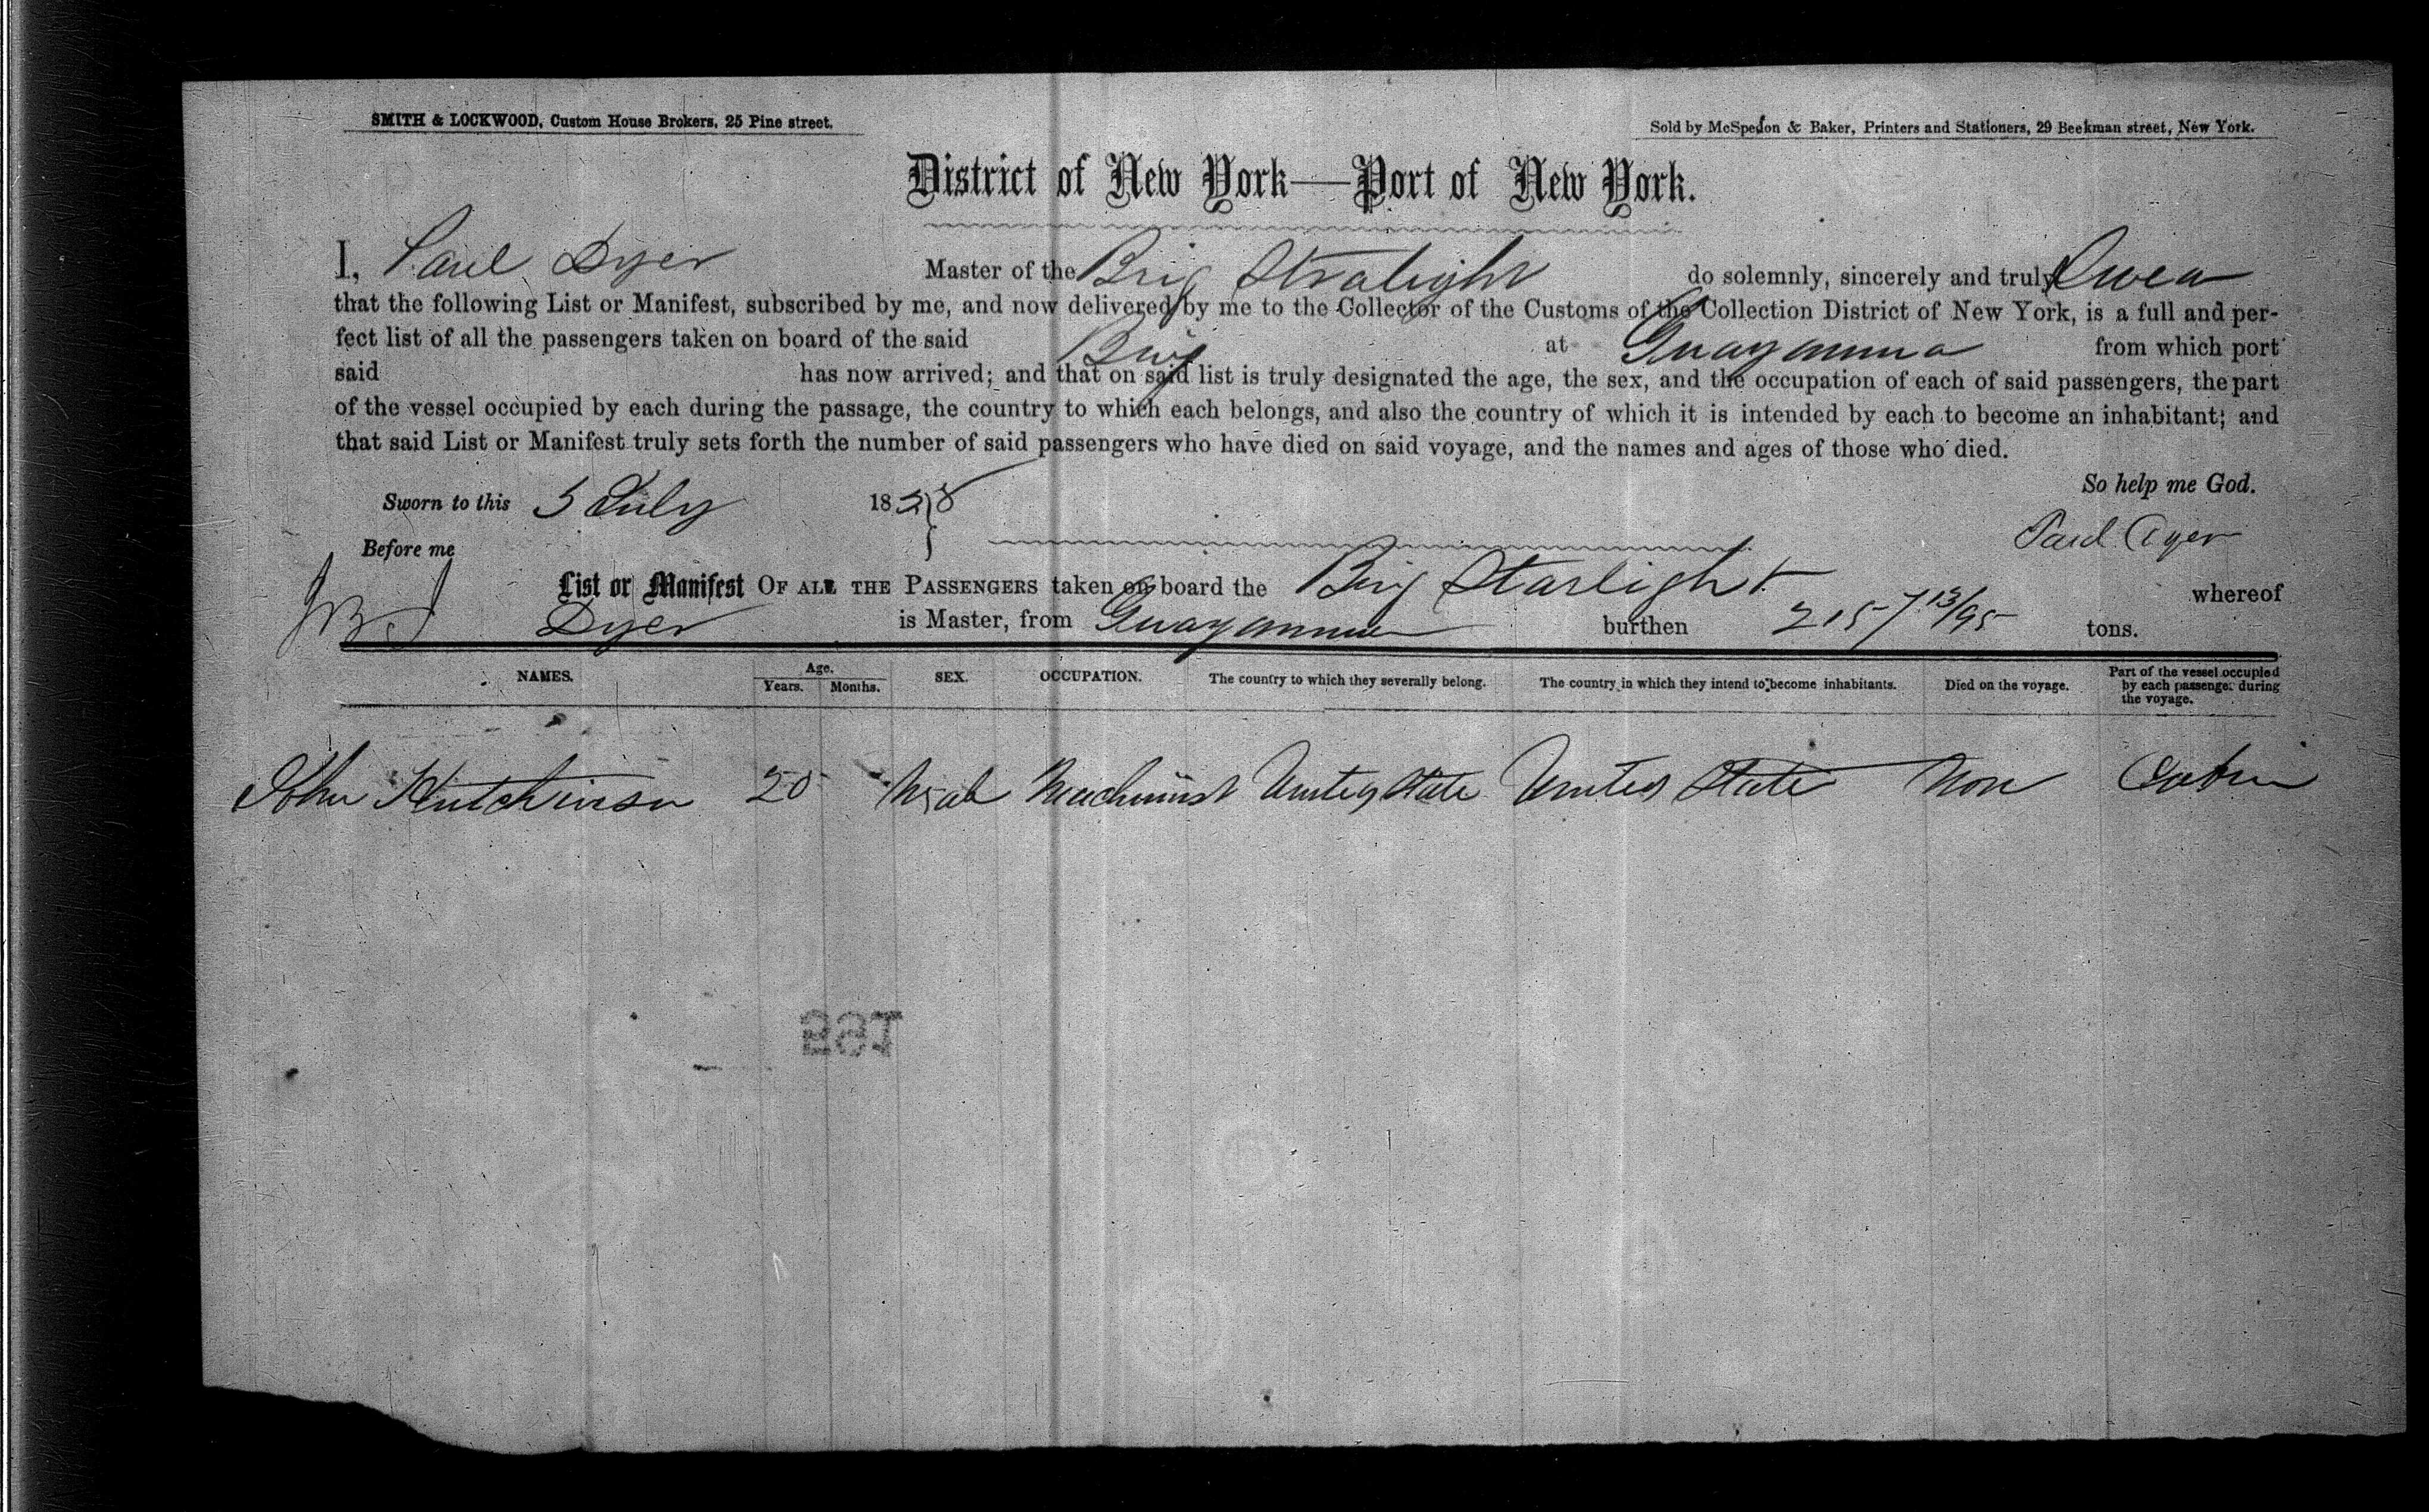 SMITH & LOCKWOOD, Custom House Brokers, 25 Pine street.
Sold by McSpedon & Baker, Printers and Stationers, 29 Beekman street, New York.
District of New York—Port of New York.
I, Paul Dyer Master of the Brig Stralight do solemnly, sincerely and truly Swea
that the following List or Manifest, subscribed by me, and now delivered by me to the Collector of the Customs of the Collection District of New York, is a full and per-
fect list of all the passengers taken on board of the said Brig at Guayanma from which port
said has now arrived; and that on said list is truly designated the age, the sex, and the occupation of each of said passengers, the part
of the vessel occupied by each during the passage, the country to which each belongs, and also the country of which it is intended by each to become an inhabitant; and
that said List or Manifest truly sets forth the number of said passengers who have died on said voyage, and the names and ages of those who died.
So help me God.
Sworn to this 5 July 1858
Paul Dyer
Before me
List or Manifest OF ALL THE PASSENGERS taken on board the Brig Starlight whereof
Dyer is Master, from burthen 215 13/95 tons.
NAMES. Age. Years. Months. SEX. OCCUPATION. The country to which they severally belong. The country in which they intend to become inhabitants. Died on the voyage. Part of the vessel occupied by each passenger during the voyage.
John Hutchinson 20 Male Machinist United State United State Non Cabin
551